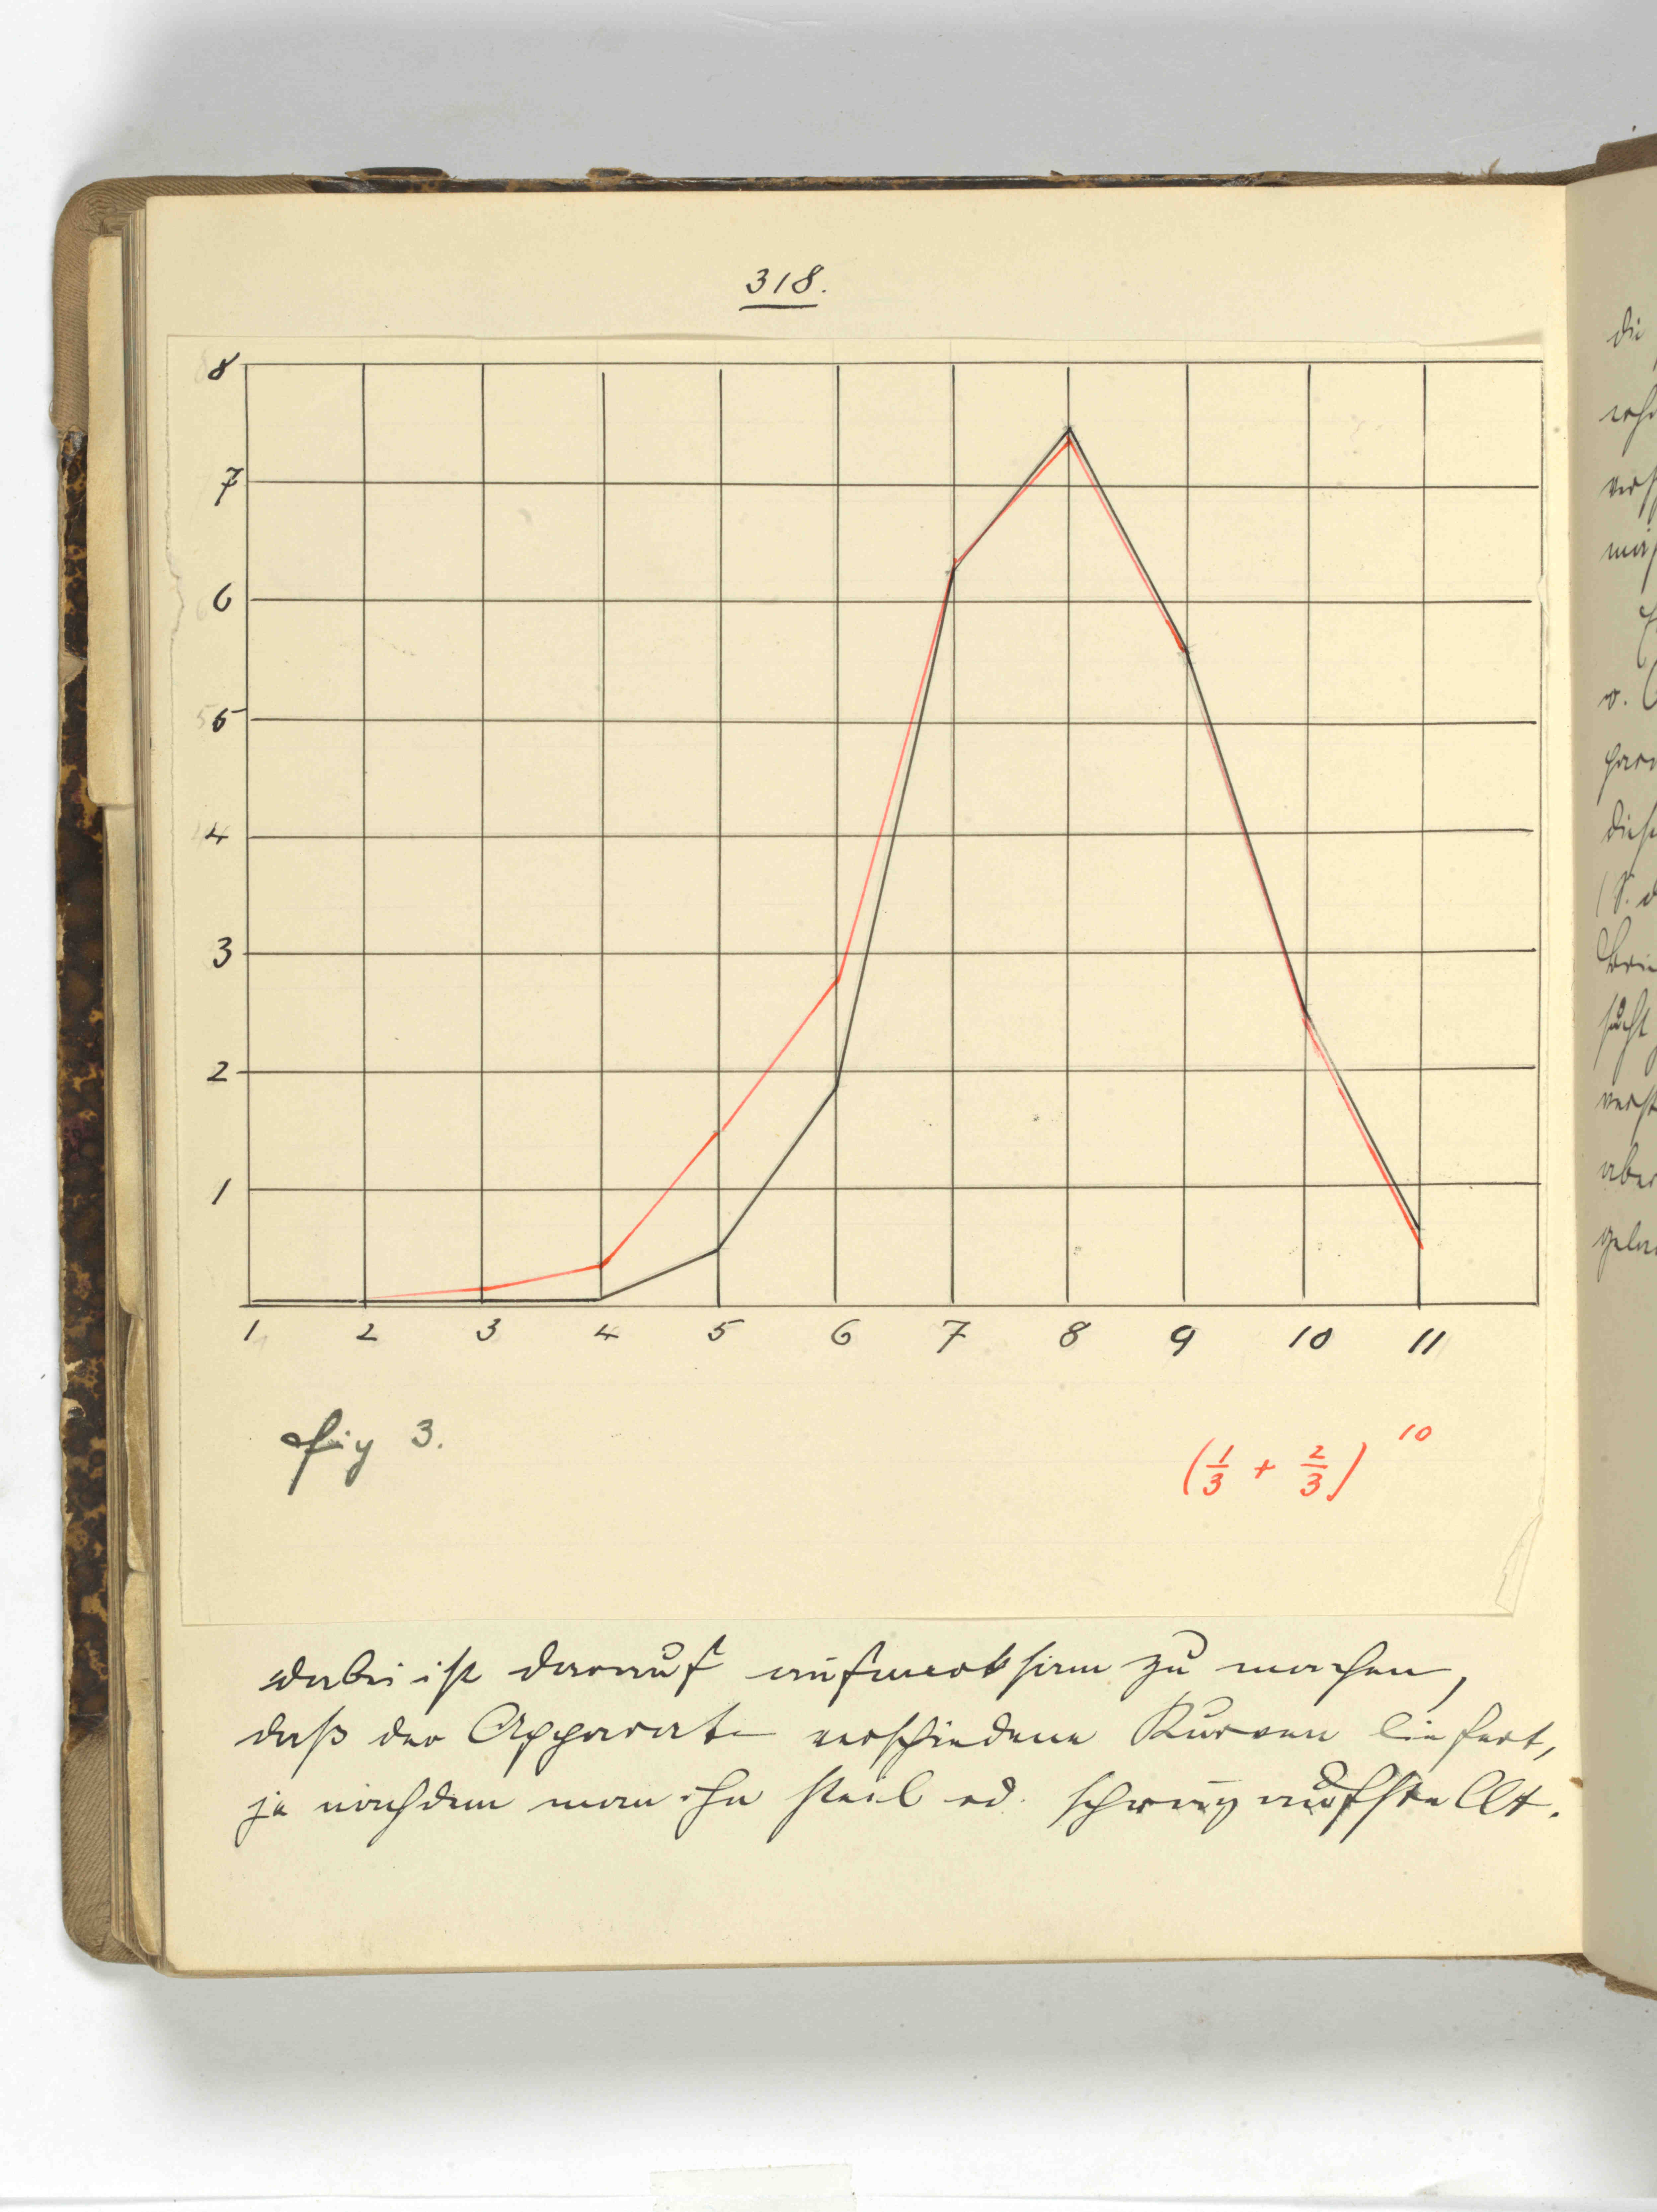 318.
8
7
6
5
4
3
2
1
1 2 3 4 5 6 7 8 9 10 11
fig 3.
(1/3 + 2/3)^10
dabei ist darauf aufmerksam zu machen,
daß der Apparat verschiedene Kurven liefert,
je nachdem man ihn steil od. schräg aufstellt.
die